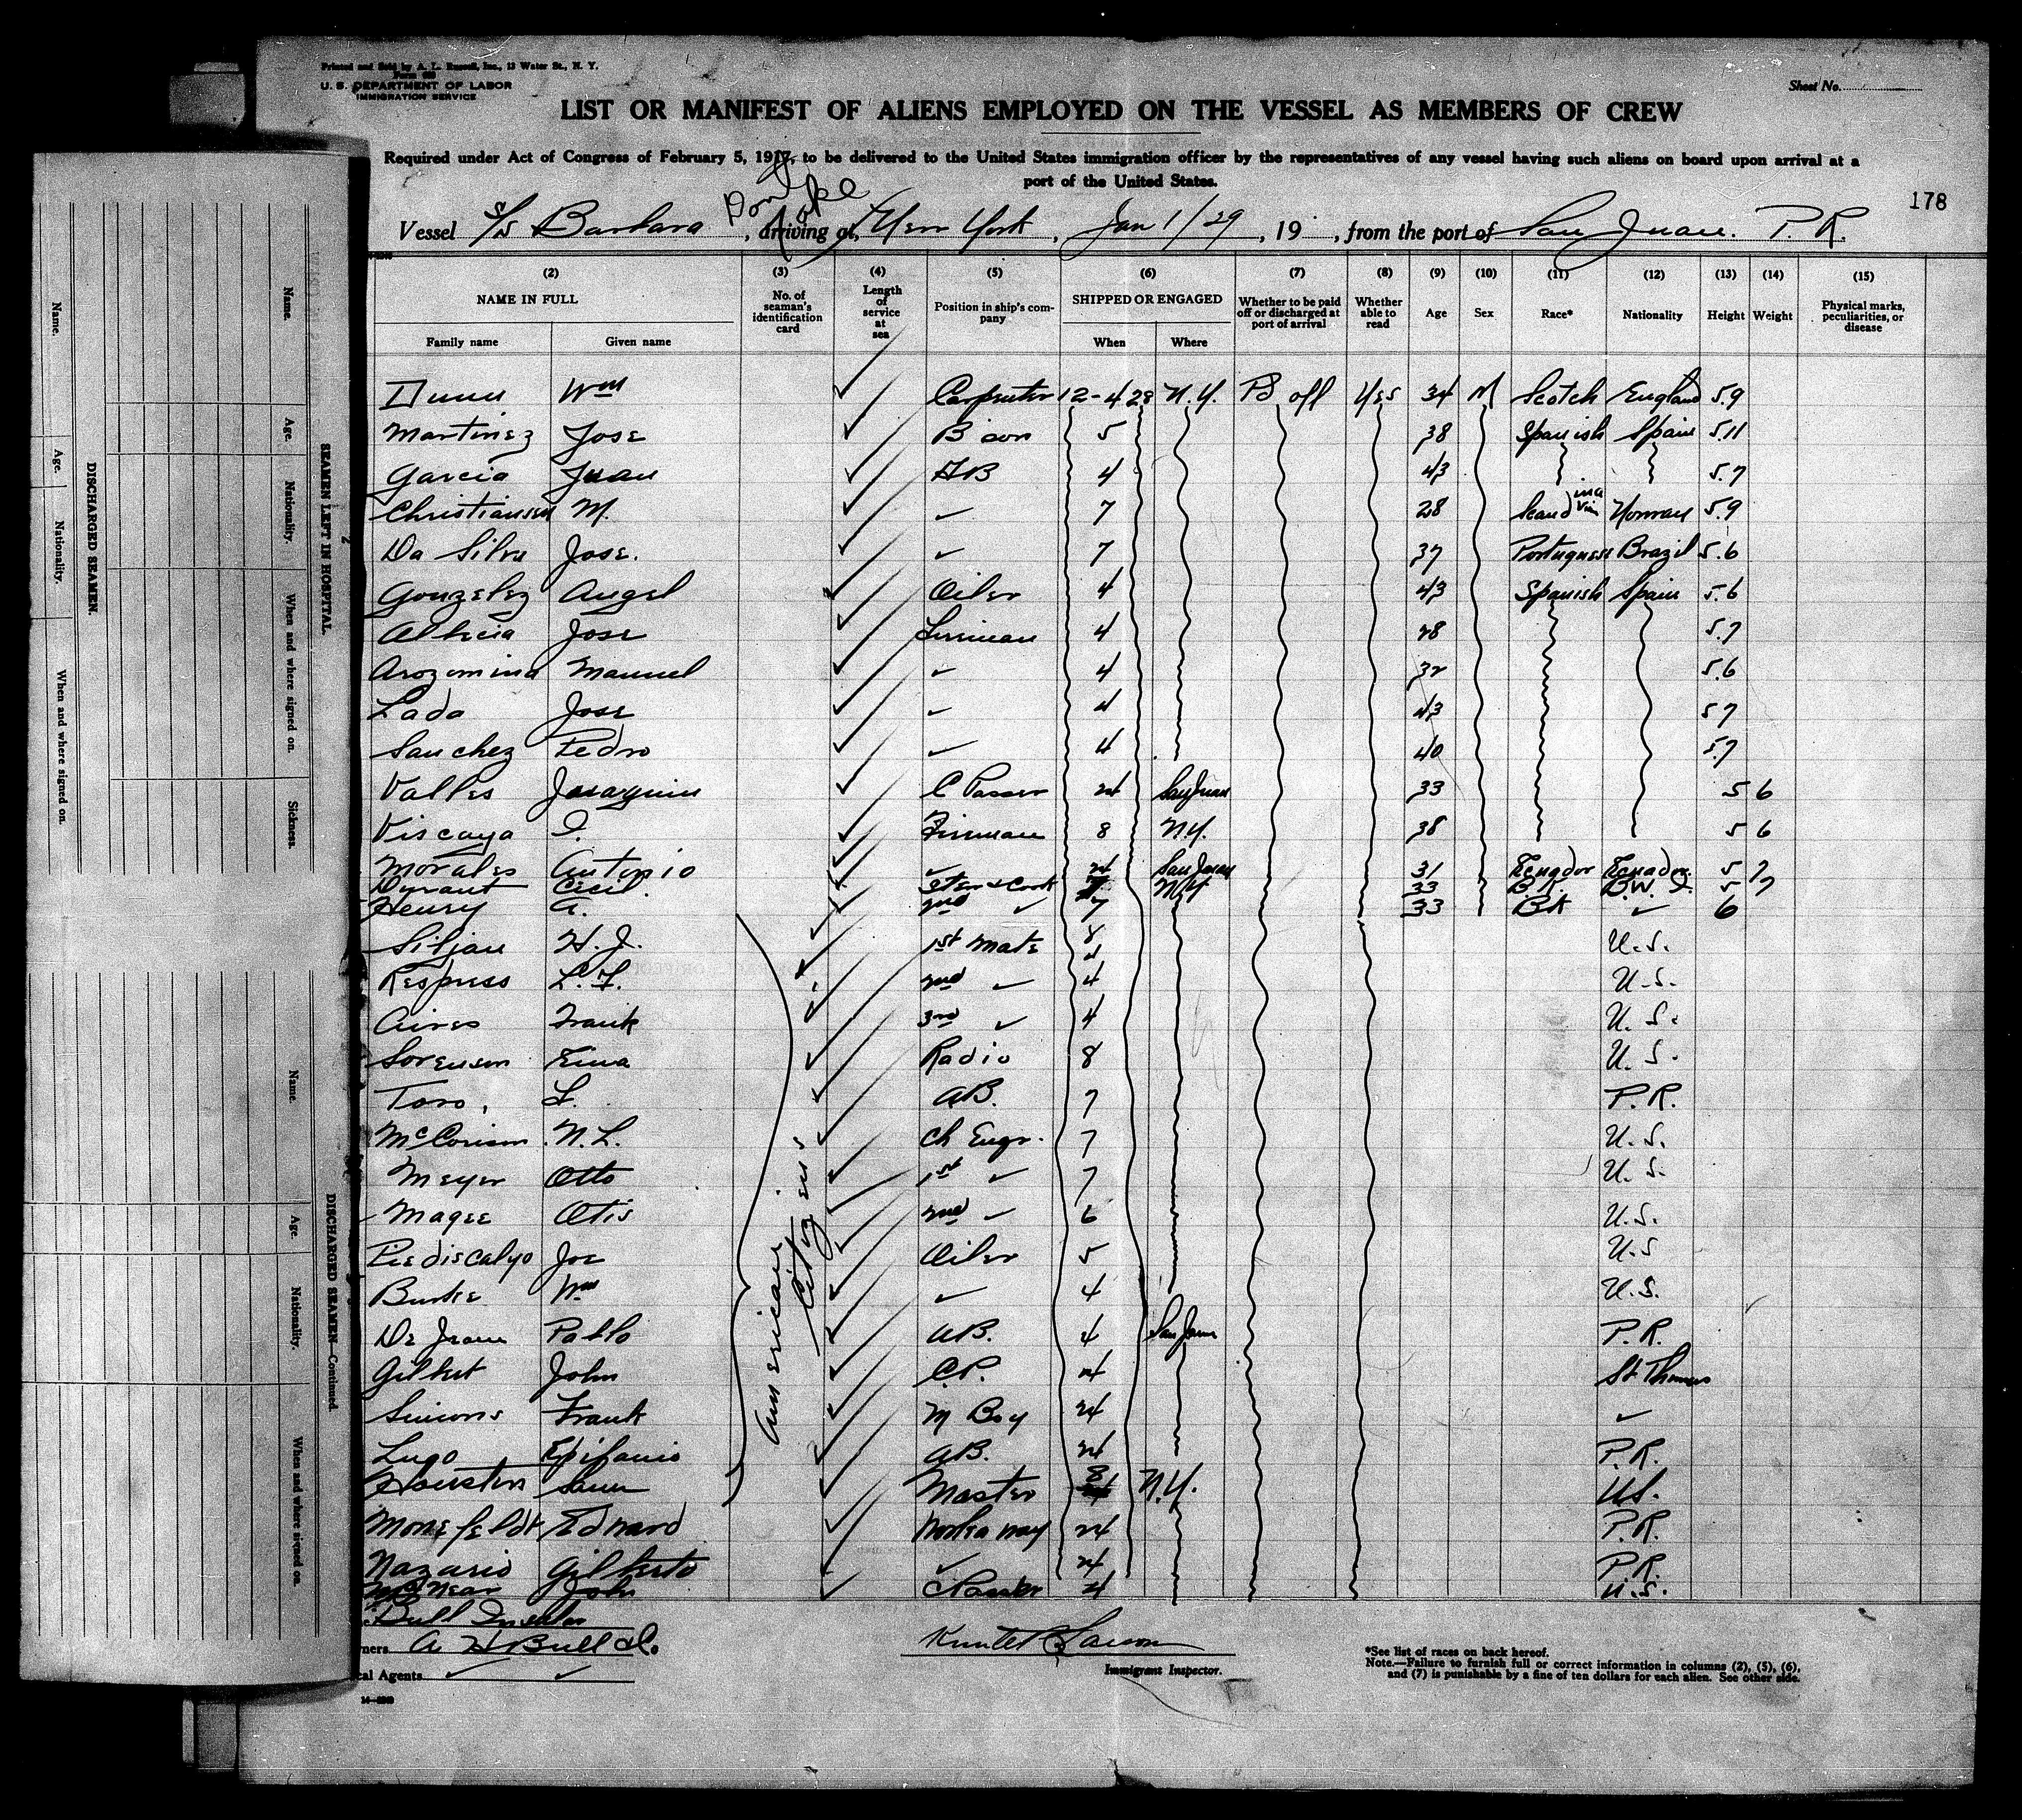 Printed and Sold by A. L. Russell, Inc., 13 Water St., N. Y.
U. S. DEPARTMENT OF LABOR
IMMIGRATION SERVICE
Sheet No.
LIST OR MANIFEST OF ALIENS EMPLOYED ON THE VESSEL AS MEMBERS OF CREW
Required under Act of Congress of February 5, 1917, to be delivered to the United States immigration officer by the representatives of any vessel having such aliens on board upon arrival at a
port of the United States.
178
Vessel S/S Barbara, arriving at, New York, Jan 1/29, 19, from the port of San Juan. P. R.
(2) (3) (4) (5) (6) (7) (8) (9) (10) (11) (12) (13) (14) (15)
NAME IN FULL No. of seaman's identification card Length of service at sea Position in ship's company SHIPPED OR ENGAGED Whether to be paid off or discharged at port of arrival Whether able to read Age Sex Race* Nationality Height Weight Physical marks, peculiarities, or disease
Family name Given name When Where
Dunn Wm Carpenter 12-4 28 N.Y. Pd off Yes 34 M Scotch England 5.9
Martinez Jose B'son 5 38 Spanish Spain 5.11
Garcia Juan AB 4 43 5.7
Christiansen M. ✓ 7 28 Scandinavian Norway 5.9
Da Silva Jose. ✓ 7 37 Portuguese Brazil 5.6
Gonzelez Angel Oiler 4 43 Spanish Spain 5.6
Jose Fireman 4 28 5.7
Arozomina Manuel ✓ 4 32 5.6
Lada Jose ✓ 4 43 5 7
Sanchez Pedro ✓ 4 40 5.7
Valles Joaquin C Passer 24 San Juan 33 5 6
Viscaya I. Fireman 8 N.Y. 38 5 6
Morales Antonio ✓ 24 San Juan 31 Ecuador Ecuador 5 7
Cecil Ster & Cook 7 N.Y. 33 B.W.I. 5 7
Henry A. 2nd ✓ 7 33 Blk ✓ 6
Siljan H. J. 1st Mate 8 U.S.
Respress L. F. 2nd ✓ 4 U.S.
Aires Frank 3rd ✓ 4 U.S.
Sorensen Radio 8 U.S.
Toro, L. AB. 7 P.R.
N. L. Ch Engr. 7 U.S.
Meyer Otto 1st ✓ 7 U.S.
Magee Otis 2nd ✓ 6 U.S.
Piediscalyo Joe Oiler 5 U.S
Burke Wm ✓ 4 U.S.
De Pablo AB. 4 San Juan P.R.
Gilbert John C.P. 24 St Thomas
Simons Frank M Boy 24 ✓
Lugo Epifanio AB. 24 P.R.
Houston Sam Master 8 N.Y. U.S.
Monefeldt Edward Workaway 24 P.R.
Nazario Gilberto ✓ 24 P.R.
McNear John C Passer 4 U.S.
American
Citizens
Bull Insular
ners A H Bull & Co.
cal Agents ✓ ✓
Immigrant Inspector.
*See list of races on back hereof.
Note.—Failure to furnish full or correct information in columns (2), (5), (6),
and (7) is punishable by a fine of ten dollars for each alien. See other side.
SEAMEN LEFT IN HOSPITAL.
Name. Age. Nationality. When and where signed on. Sickness.
DISCHARGED SEAMEN.
Name. Age. Nationality. When and where signed on.
DISCHARGED SEAMEN—Continued.
Name. Age. Nationality. When and where signed on.